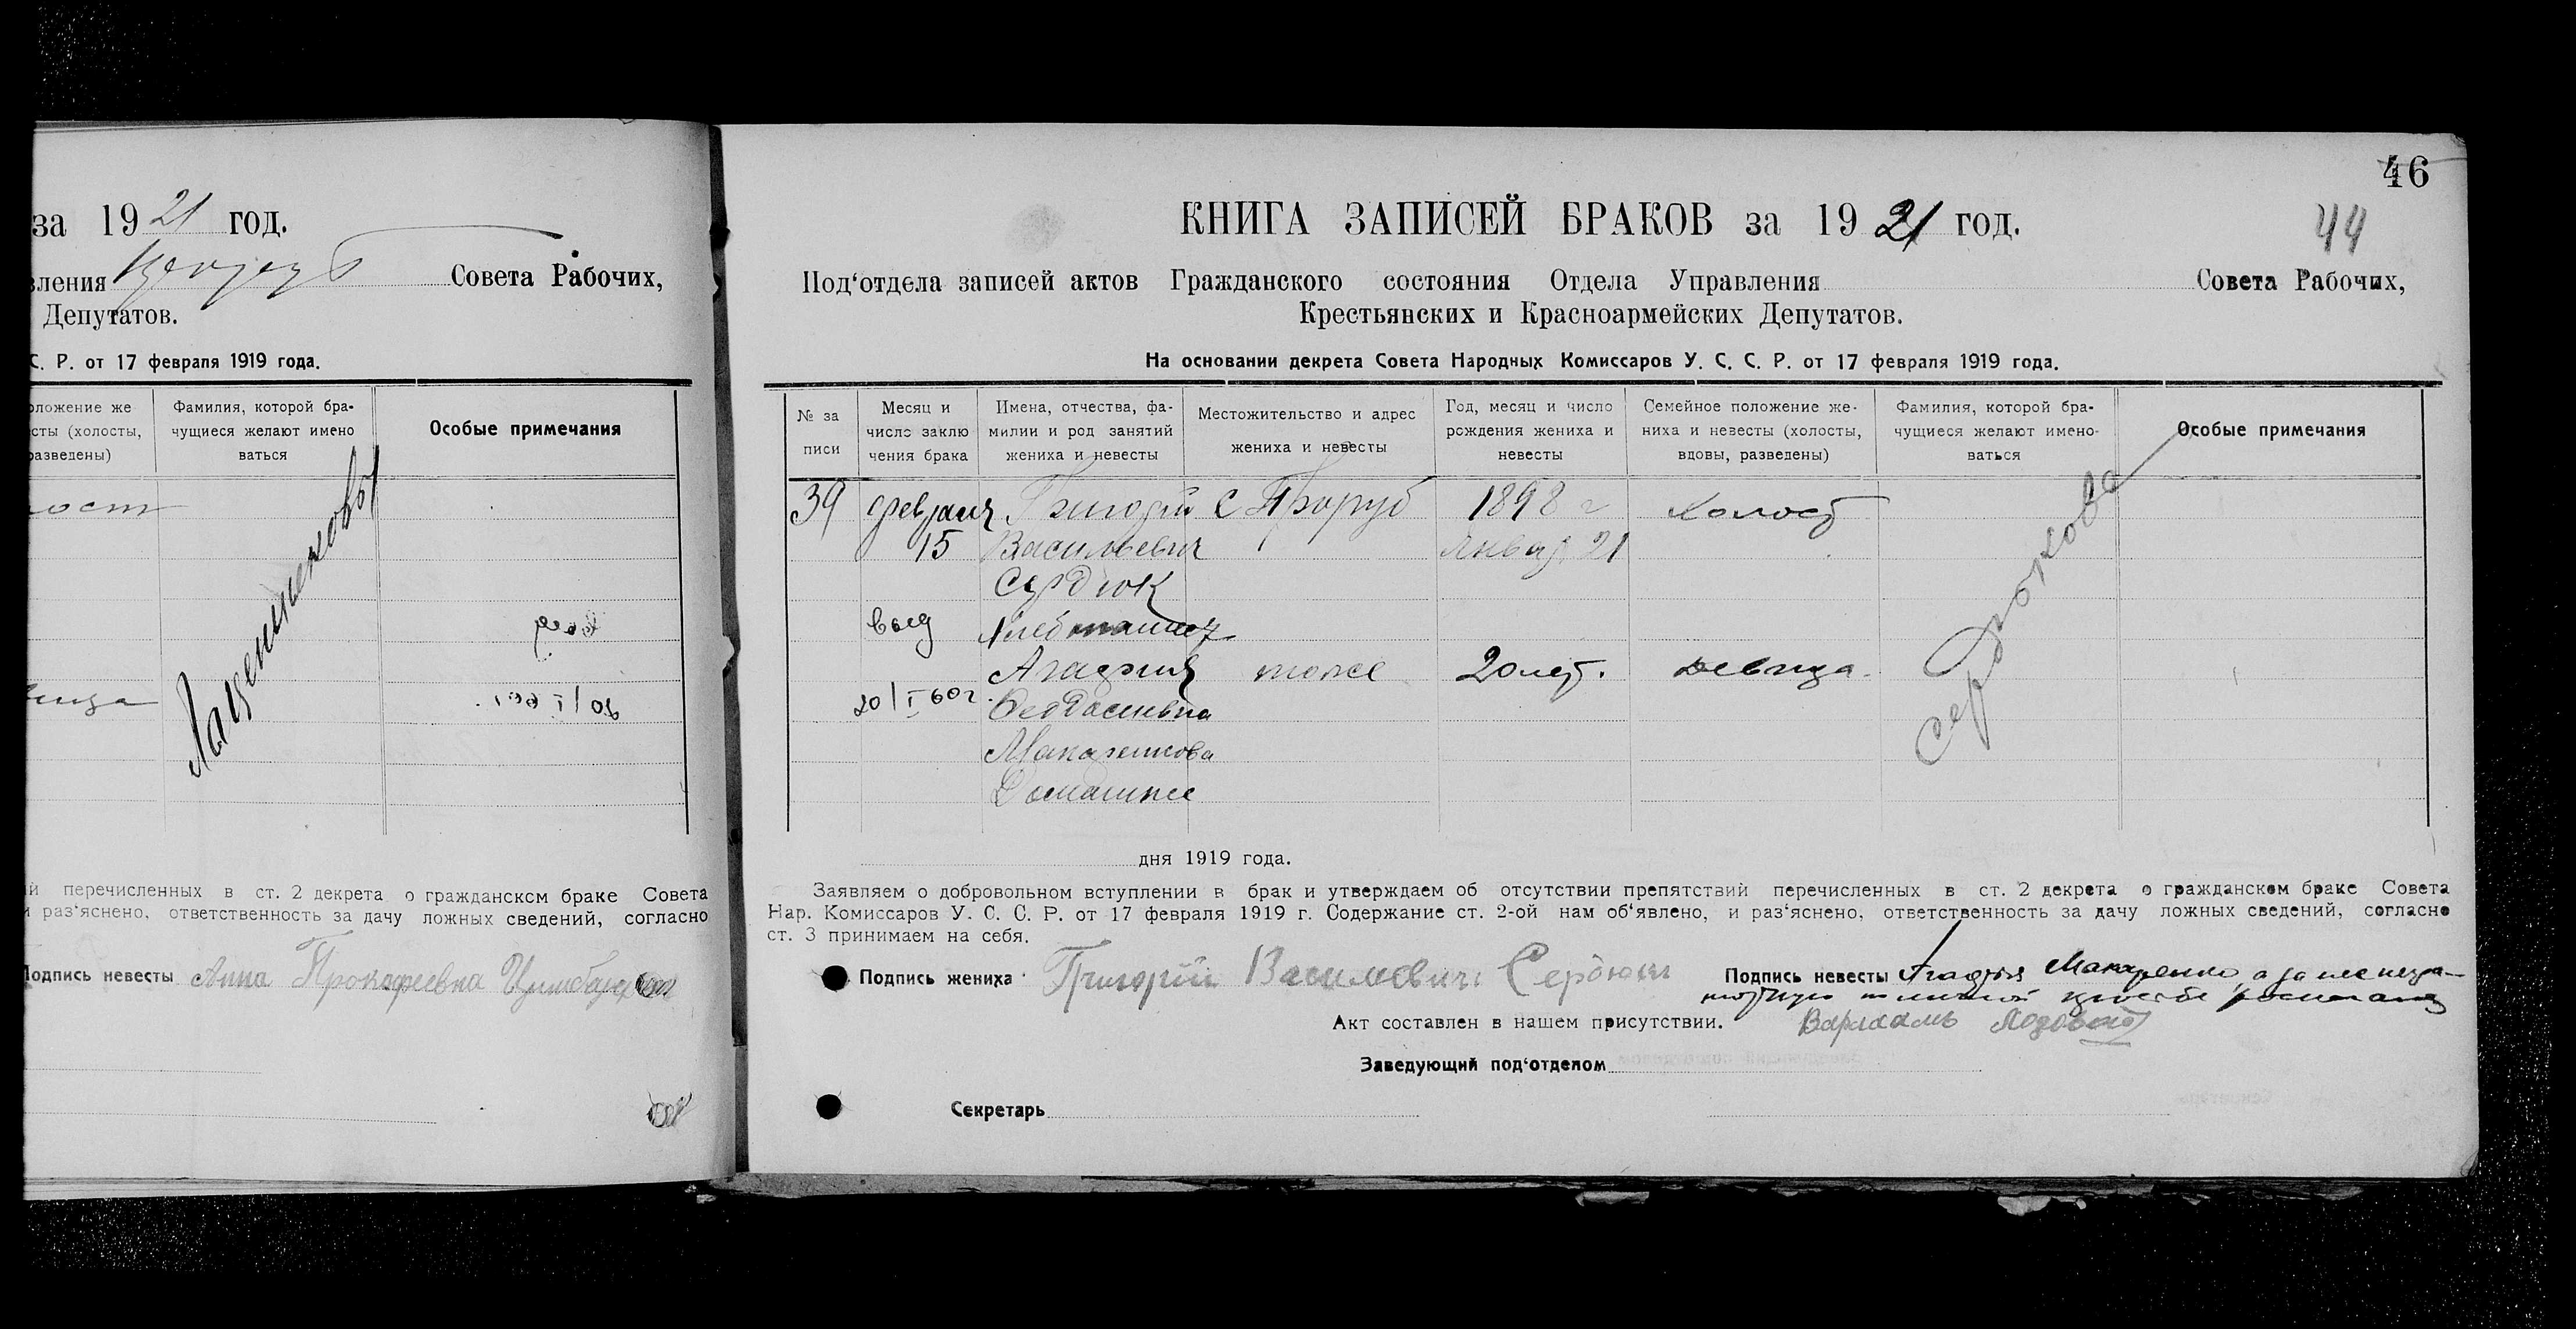 за 1921 год.
вления Совета Рабочих,
Депутатов.
С. Р. от 17 февраля 1919 года.
оложение же
сты (холосты,
разведены)
Фамилия, которой бра-
чущиеся желают имено
ваться
Особые примечания
лост
Лященковы
вица
й перечисленных в ст. 2 декрета о гражданском браке Совета
и раз‘яснено, ответственность за дачу ложных сведений, согласно
Подпись невесты Анна Прокофеевна
46
КНИГА ЗАПИСЕЙ БРАКОВ за 1921 год.
44
Под‘отдела записей актов Гражданского состояния Отдела Управления Совета Рабочих,
Крестьянских и Красноармейских Депутатов.
На основании декрета Совета Народных Комиссаров У. С. С. Р. от 17 февраля 1919 года.
№ за
писи
Месяц и
число заклю
чения брака
Имена, отчества, фа-
милии и род занятий
жениха и невесты
Местожительство и адрес
жениха и невесты
Год, месяц и число
рождения жениха и
невесты
Семейное положение же-
ниха и невесты (холосты,
вдовы, разведены)
Фамилия, которой бра-
чущиеся желают имено-
ваться
Особые примечания
39 февраля Григорій с Проруб 1898 г холост
15 Васильевич январ. 21
Сердюк
выд Хлебопашец
Агафия тоже 20 лет. девица.
20/I 60г. Феодосиевна
Макаренкова
Домашнее
Сердюкова
дня 1919 года.
Заявляем о добровольном вступлении в брак и утверждаем об отсутствии препятствий перечисленных в ст. 2 декрета о гражданском браке Совета
Нар. Комиссаров У. С. С. Р. от 17 февраля 1919 г. Содержание ст. 2-ой нам об‘явлено, и раз‘яснено, ответственность за дачу ложных сведений, согласно
ст. 3 принимаем на себя.
Подпись жениха Григорій Василовичь Сердюкъ Подпись невесты Агафия Макаренко, а за нее негра-
мотную по личной просьбе росписался
Акт составлен в нашем присутствии. Варлаамъ Лозовой
Заведующий под‘отделом
Секретарь